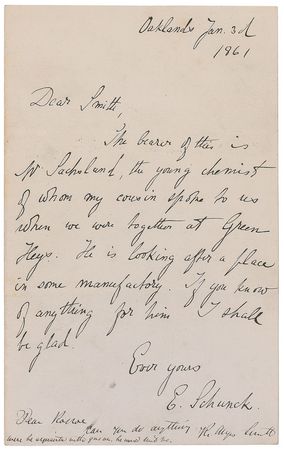 Oaklands Jan. 3d
1961
Dear Smith,
The bearer of this is
Mr Sachsland, the young chemist
of whom my cousin spoke to us
when we were together at Green
Heys. He is looking after a place
in some manufactory. If you know
of anything for him I shall
be glad.
Ever yours
E. Schunck.
Dear Roscoe,
Can you do anything
R. Angus Smith